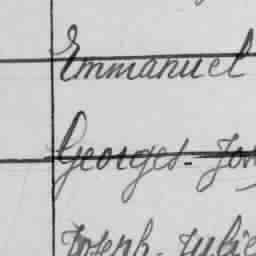 Emmanuel
Georges - Jos
Joseph - Julie